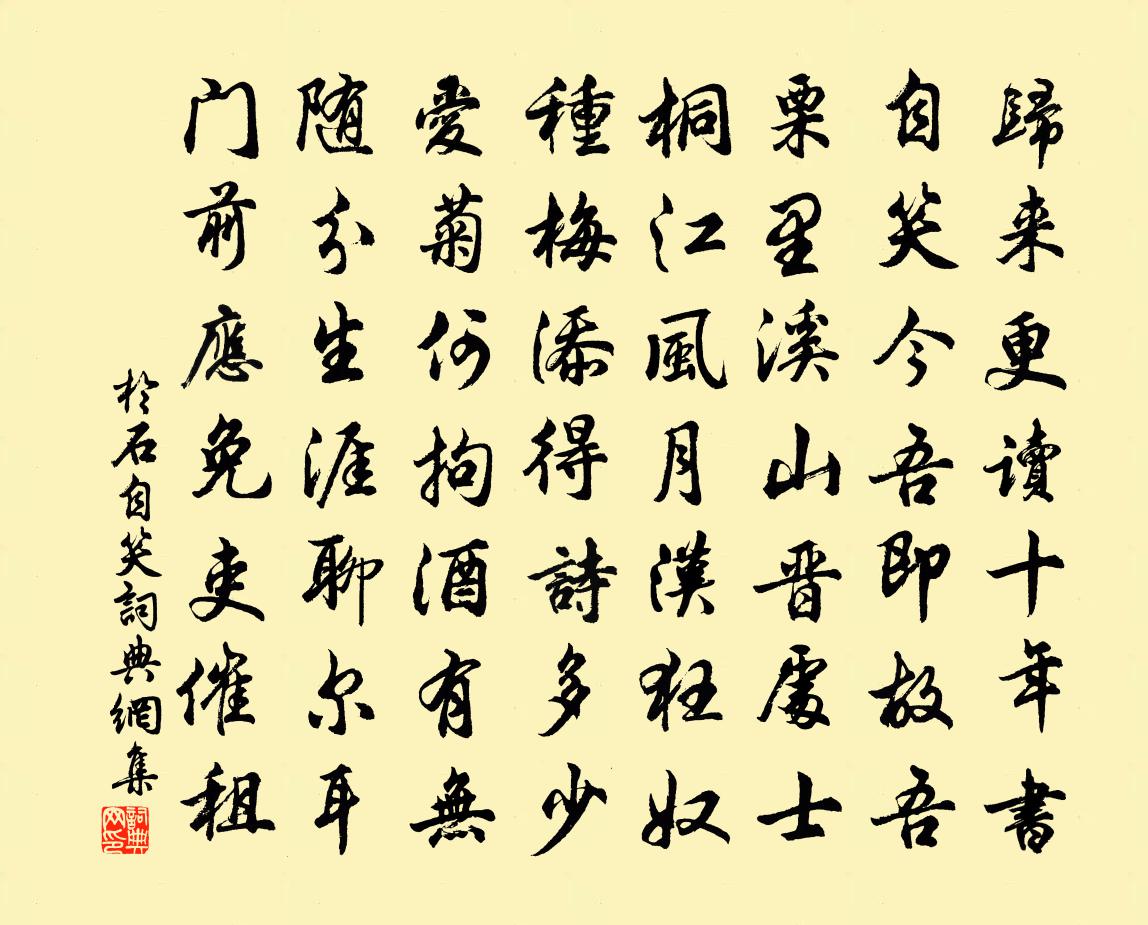 歸来更讀十年書
自笑今吾即故吾
栗里溪山晋處士
桐江風月漢狂奴
種梅添得詩多少
愛菊何拘酒有無
随分生涯聊尔耳
门前應免吏催租
於石自笑詞典網集
詞典網印